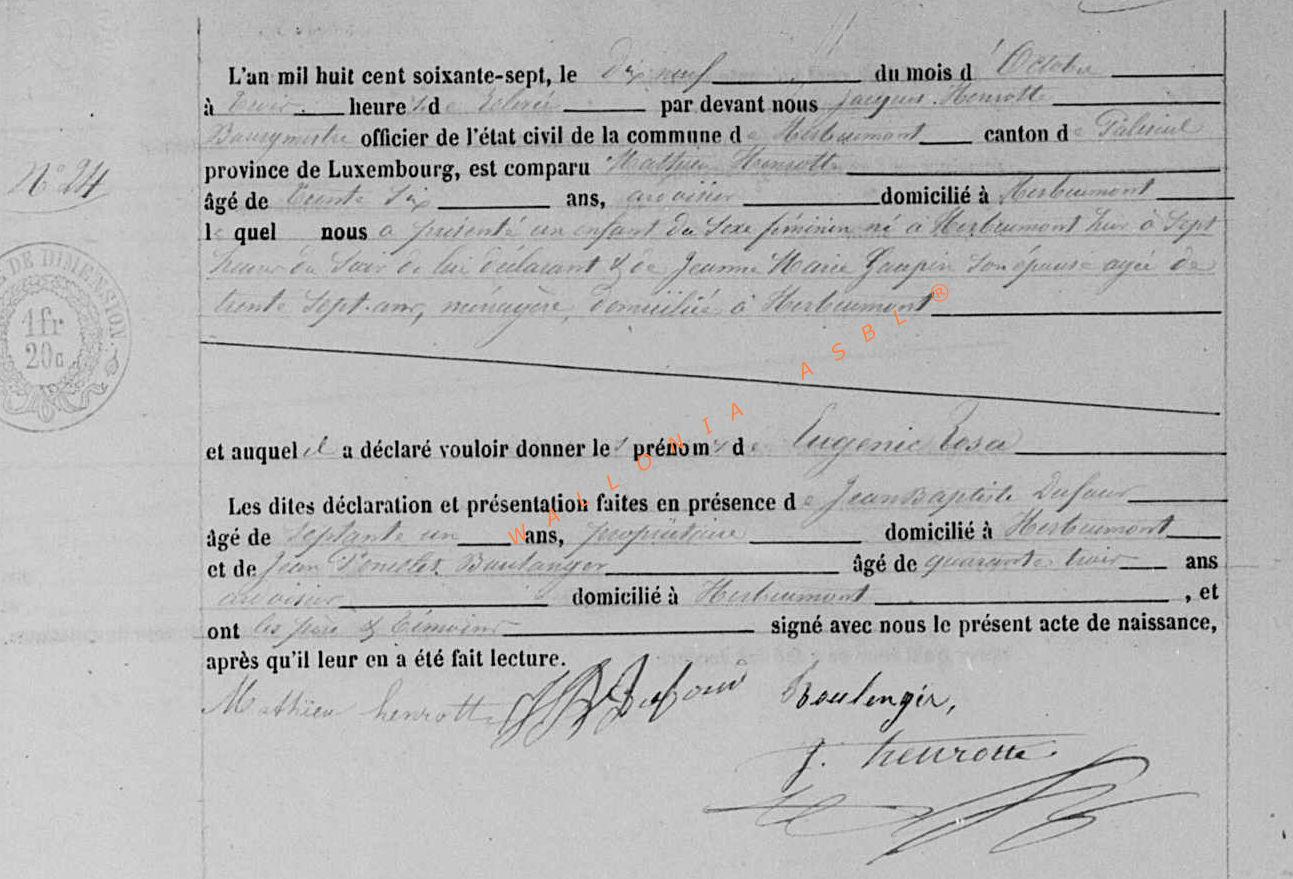 L'an mil huit cent soixante-sept, le Dix neuf du mois d'Octobre
à trois heures de relevée par devant nous Jacques Henrotte
Bourgmestre officier de l'état civil de la commune de Herbeumont canton de Paliseul
province de Luxembourg, est comparu Mathieu Henrotte
N° 24
âgé de trente six ans, ardoisier domicilié à Herbeumont
lequel nous a présenté un enfant du sexe féminin né à Herbeumont hier à sept
heures du soir de lui déclarant & de Jeanne Marie son épouse agée de
trente sept ans, ménagère, domiciliée à Herbeumont
DE DIMENSION.
1fr
20c
et auquel il a déclaré vouloir donner les prénoms de Eugenie Rosa
Les dites déclaration et présentation faites en présence de Jean Baptiste Dufour
âgé de septante un ans, propriétaire domicilié à Herbeumont
et de Jean Boulanger âgé de quarante trois ans
ardoisier domicilié à Herbeumont, et
ont les père & témoins signé avec nous le présent acte de naissance,
après qu'il leur en a été fait lecture.
Mathieu henrotte JB Dufour Boulenger,
J. henrotte
WALLONIA ASBL ®